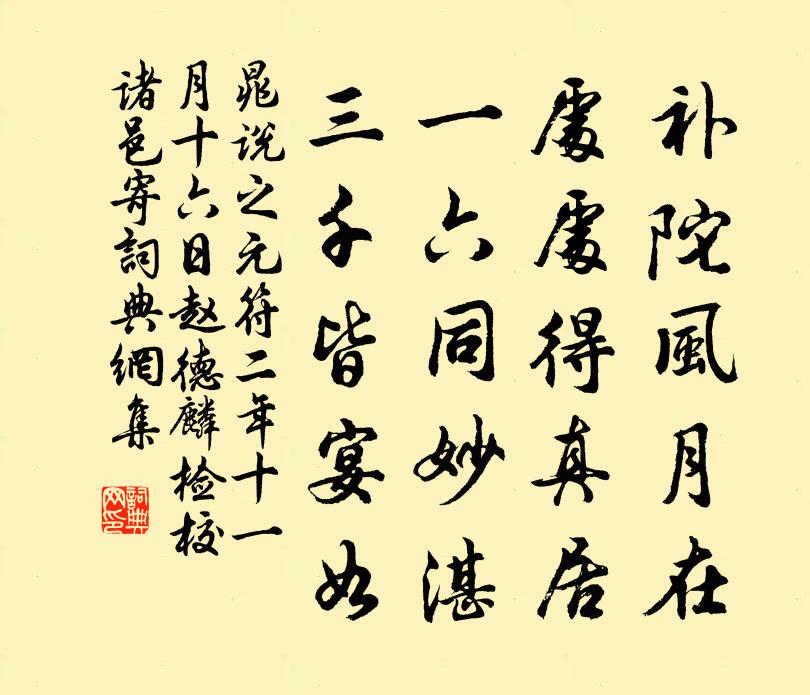 补陀風月在
處處得真居
一六同妙湛
三千皆宴如
晁说之元符二年十一
月十六日赵德麟检校
诸邑寄詞典網集
詞典网印